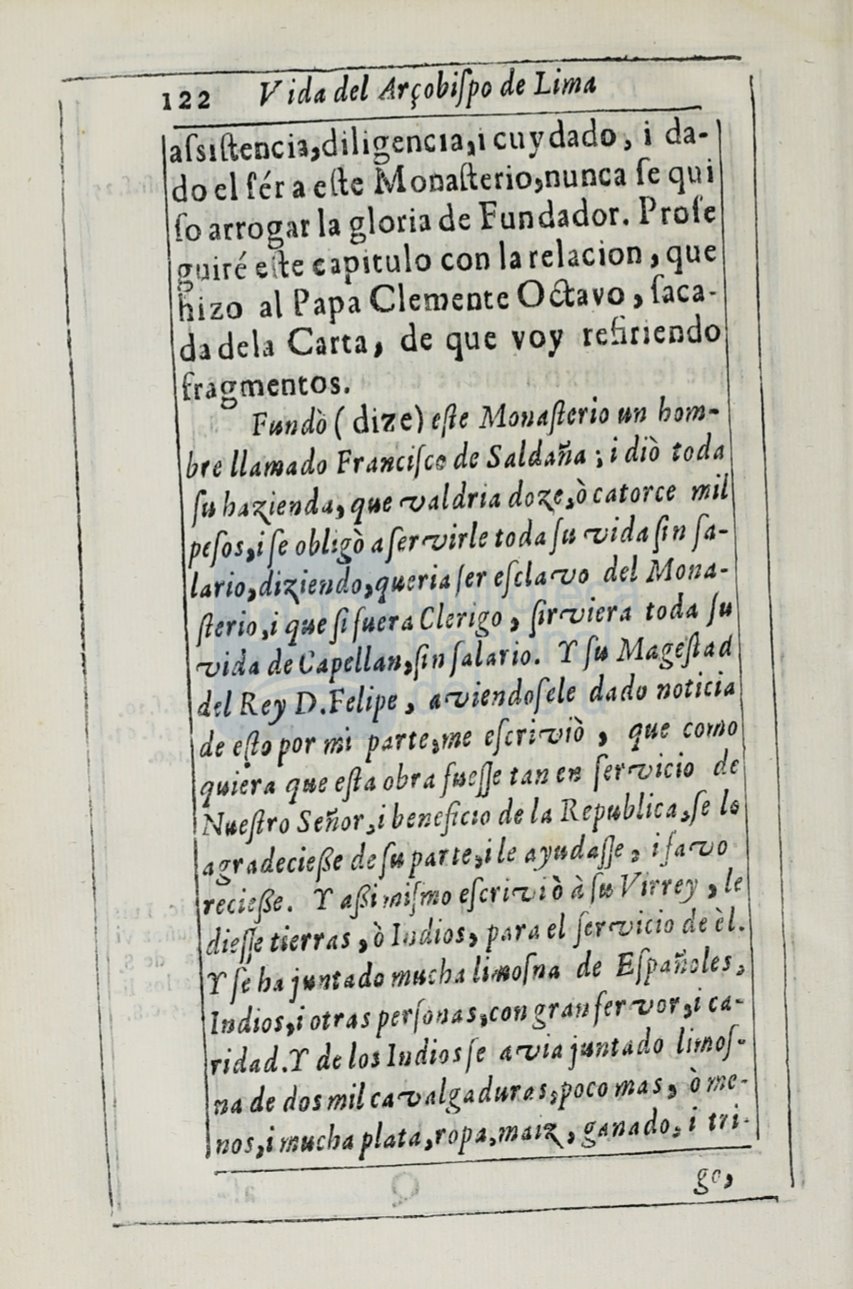 122 Vida del Arçobiſpo de Lima
aſsiſtencia, diligencia, i cuydado, i da-
do el ſér a eſte Monaſterio, nunca ſe qui
ſo arrogar la gloria de Fundador. Proſe
guiré eſte capitulo con la relacion, que
hizo al Papa Clemente Octavo, ſaca-
da dela Carta, de que voy refiriendo
fragmentos.
Fundò (dize) eſte Monaſterio un hom-
bre llamado Franciſco de Saldaña; i diò toda
ſu hazienda, que valdria doze, ò catorce mil
peſos, i ſe obligò a ſervirle toda ſu vida ſin ſa-
lario, diziendo, queria ſer eſclavo del Mona-
ſterio, i que ſi fuera Clerigo, ſirviera toda ſu
vida de Capellan, ſin ſalario. Y ſu Mageſtad
del Rey D. Felipe, aviendoſele dado noticia
de eſto por mi parte, me eſcriviò, que como
quiera que eſta obra fueſſe tan en ſervicio de
Nueſtro Señor, i beneficio de la Republica, ſe lo
agradecieſſe de ſu parte, i le ayudaſſe, i favo
recieſſe. Y aſſimiſmo eſcriviò à ſu Virrey, le
dieſſe tierras, ò Indios, para el ſervicio de èl.
Y ſe ha juntado mucha limoſna de Eſpañoles,
Indios, i otras perſonas, con gran fervor, i ca-
ridad. Y de los Indios ſe avia juntado limoſ-
na de dos mil cavalgaduras, poco mas, ò me-
nos, i mucha plata, ropa, maiz, ganado, i tri-
go,